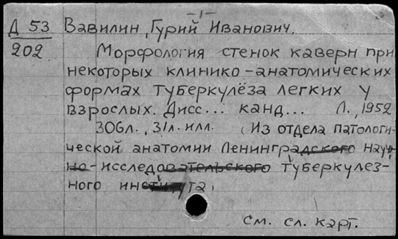 -1-
Д 53 Вавилин, Гурий Иванович.
202
Морфология стенок каверн при
некоторых клинико-анатомических
формах туберкулёза легких у
взрослых. Дисс... канд... Л., 1952
306л., 31л. илл. (Из отдела патологи-
ческой анатомии Ленинградского науч-
но-исследовательского туберкулез-
ного института)
см. сл. карт.